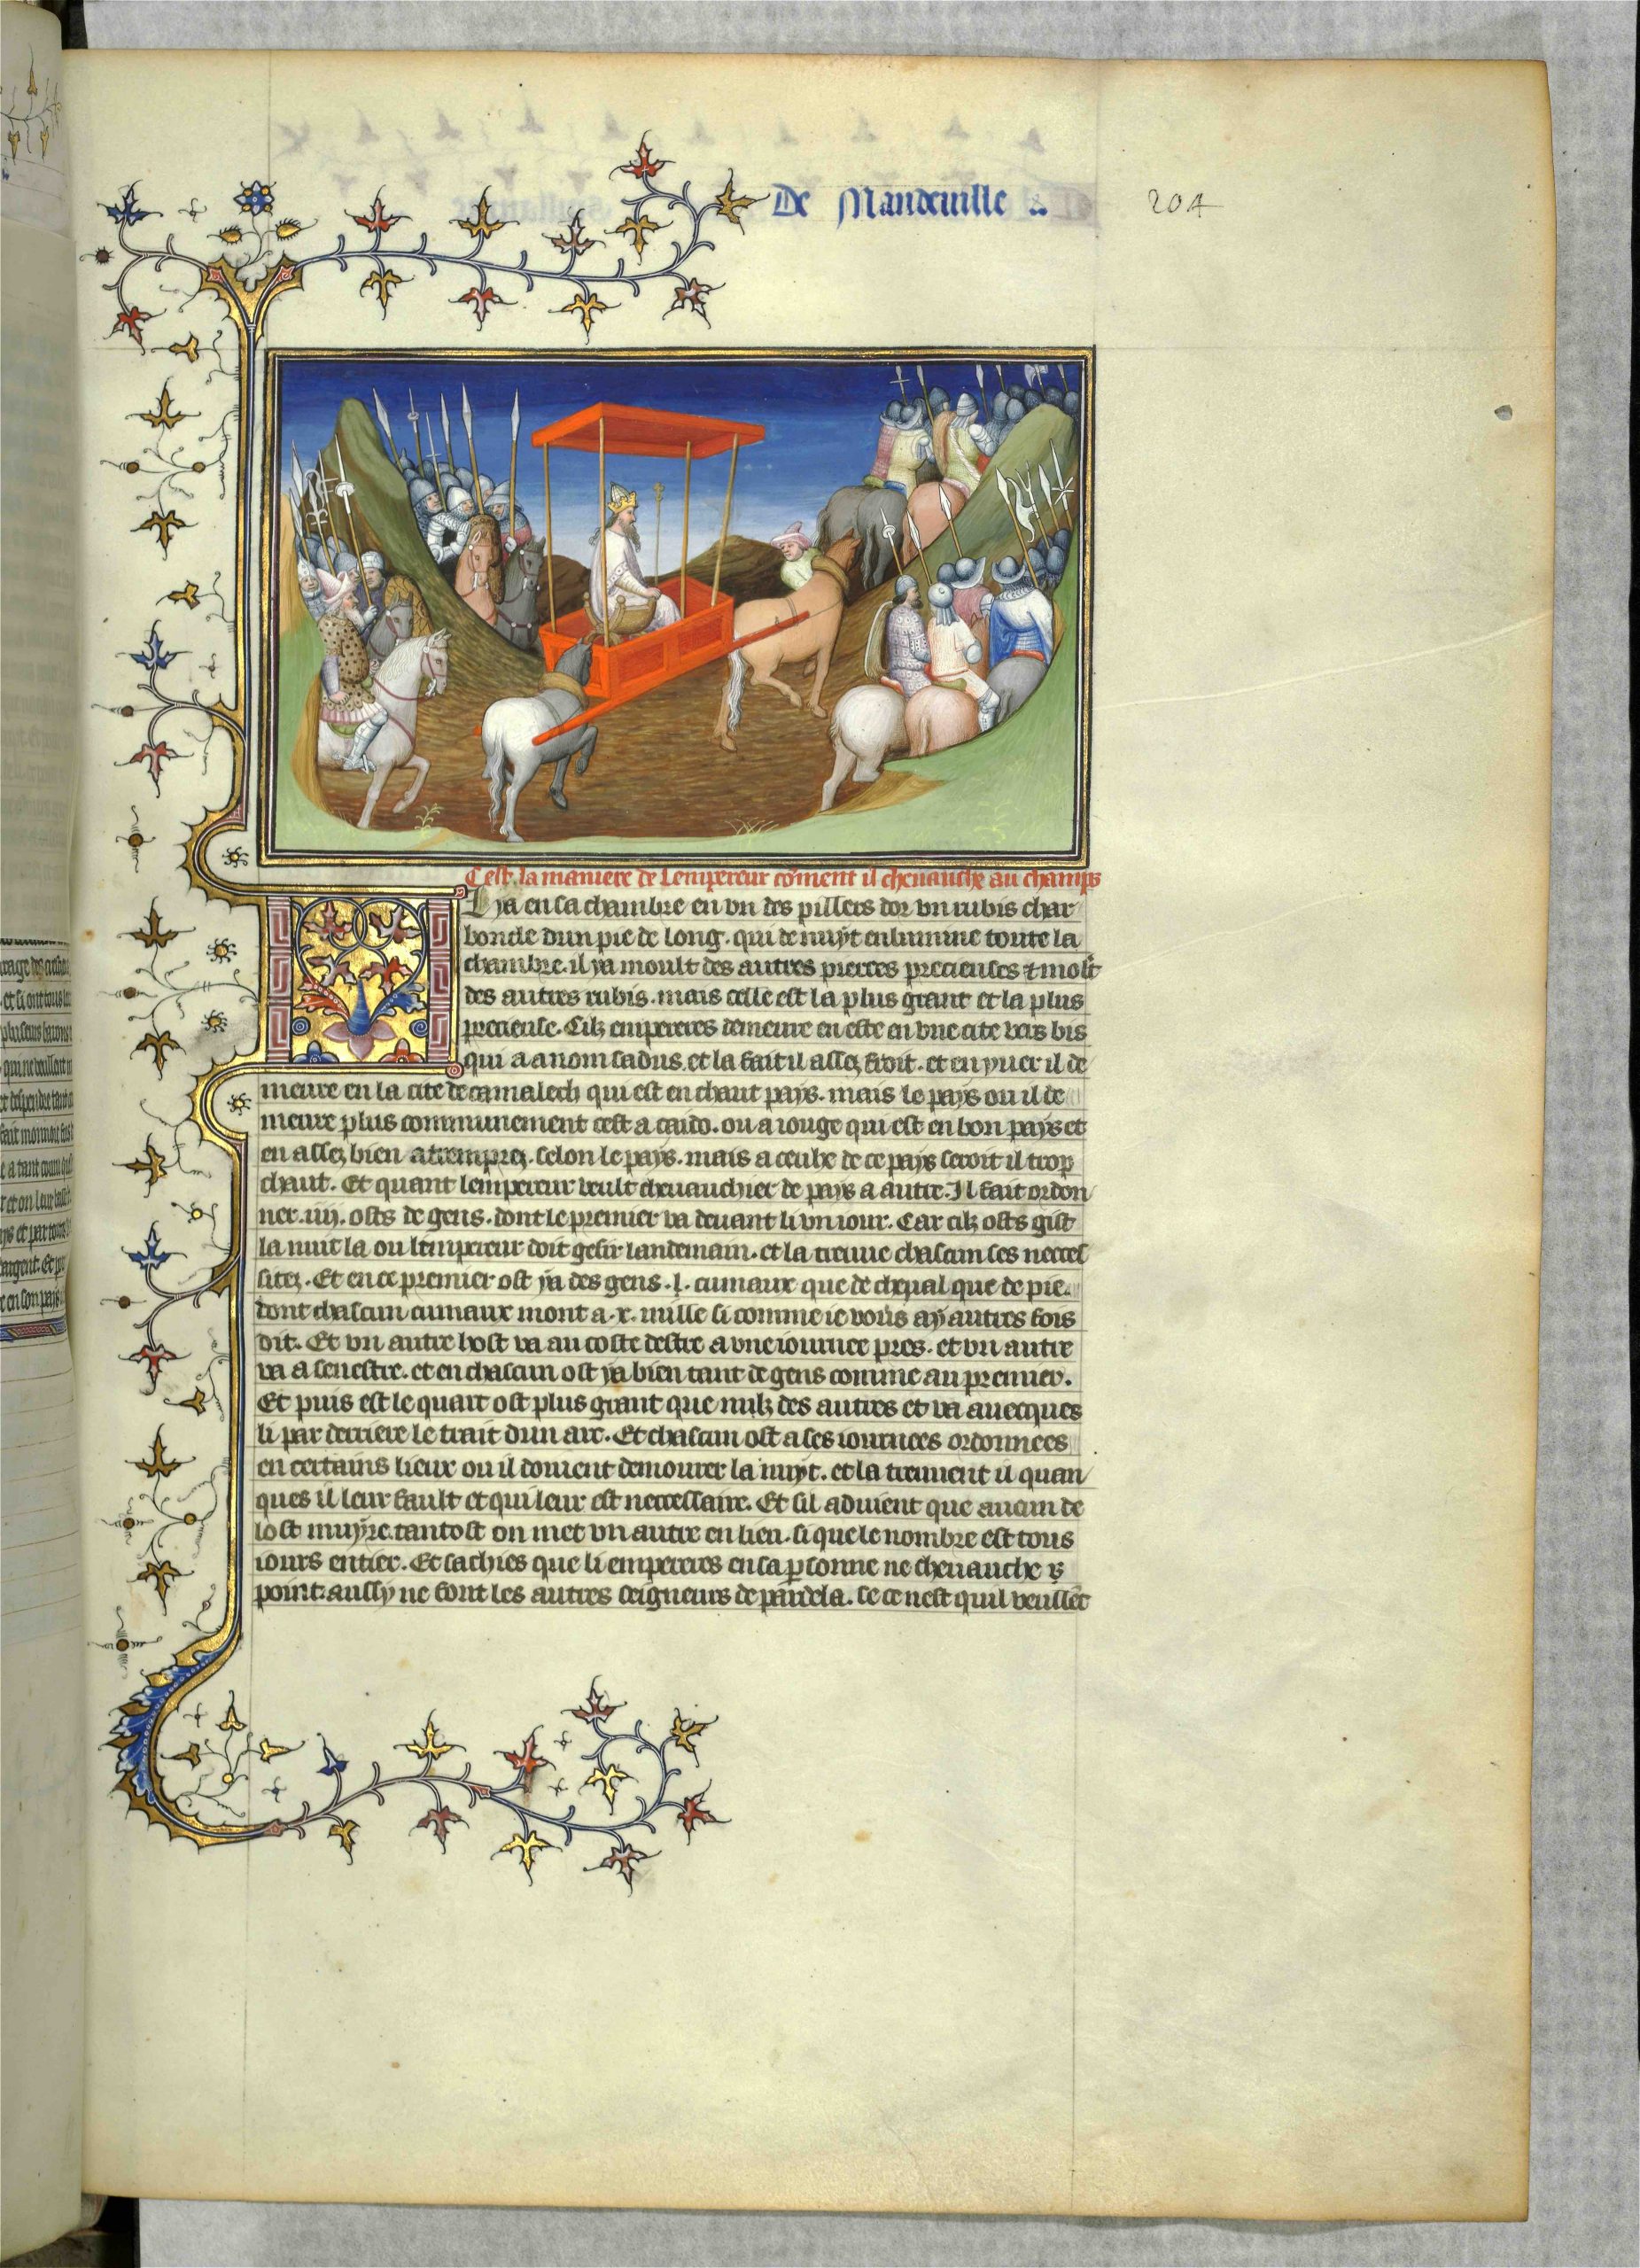 De Mandeuille
204
C'est la maniere de Lempereur cōment il cheuauche au champs
Il ya en sa chambre en vn des pillers dor vn rubis char
boncle dun pie de long. qui de nuyt enlumine toute la
chambre. il ya moult des autres pierres precieuses ⁊ molt
des autres rubis. mais celle est la plus grant et la plus
precieuse. Cilz empereres demeure en este en vne cite vers bis
qui a a nom sadus. et la fait il assez froit. et en yuer il de
meure en la cite de camalech qui est en chaut pays. mais le pays ou il de
meure plus communement cest a caido. ou a iouge qui est en bon pays et
en assez bien atrempez. selon le pays. mais a ceulx de ce pays seroit il trop
chaut. Et quant lempereur veult cheuauchier de pays a autre. Il fait ordon
ner .iiij. osts de gens. dont le premier va deuant li vn iour. Car cilz osts gist
la nuit la ou lempereur doit gesir landemain. et la treuue chascun ses neces
sitez. Et en ce premier ost ya des gens .l. cumaux que de cheual que de pie.
dont chascun cumaux mont a .x. mille si comme ie vous ay autres fois
dit. Et vn autre host va au coste destre a vne iournee pres. et vn autre
va a senestre. et en chascun ost ya bien tant de gens comme au premier.
Et puis est le quart ost plus grant que nulz des autres et va auecques
li par derriere le trait dun arc. Et chascun ost a ses iournees ordonnees
en certains lieux ou il doiuent demourer la nuyt. et la treuuent il quan
ques il leur fault et qui leur est neccessaire. Et sil aduient que aucun de
lost muyre. tantost on met vn autre en lieu. si que le nombre est tous
iours entier. Et sachies que li empereres en sa ꝑsonne ne cheuauche
point. aussy ne font les autres seigneurs de pardela. se ce nest quil veullēt